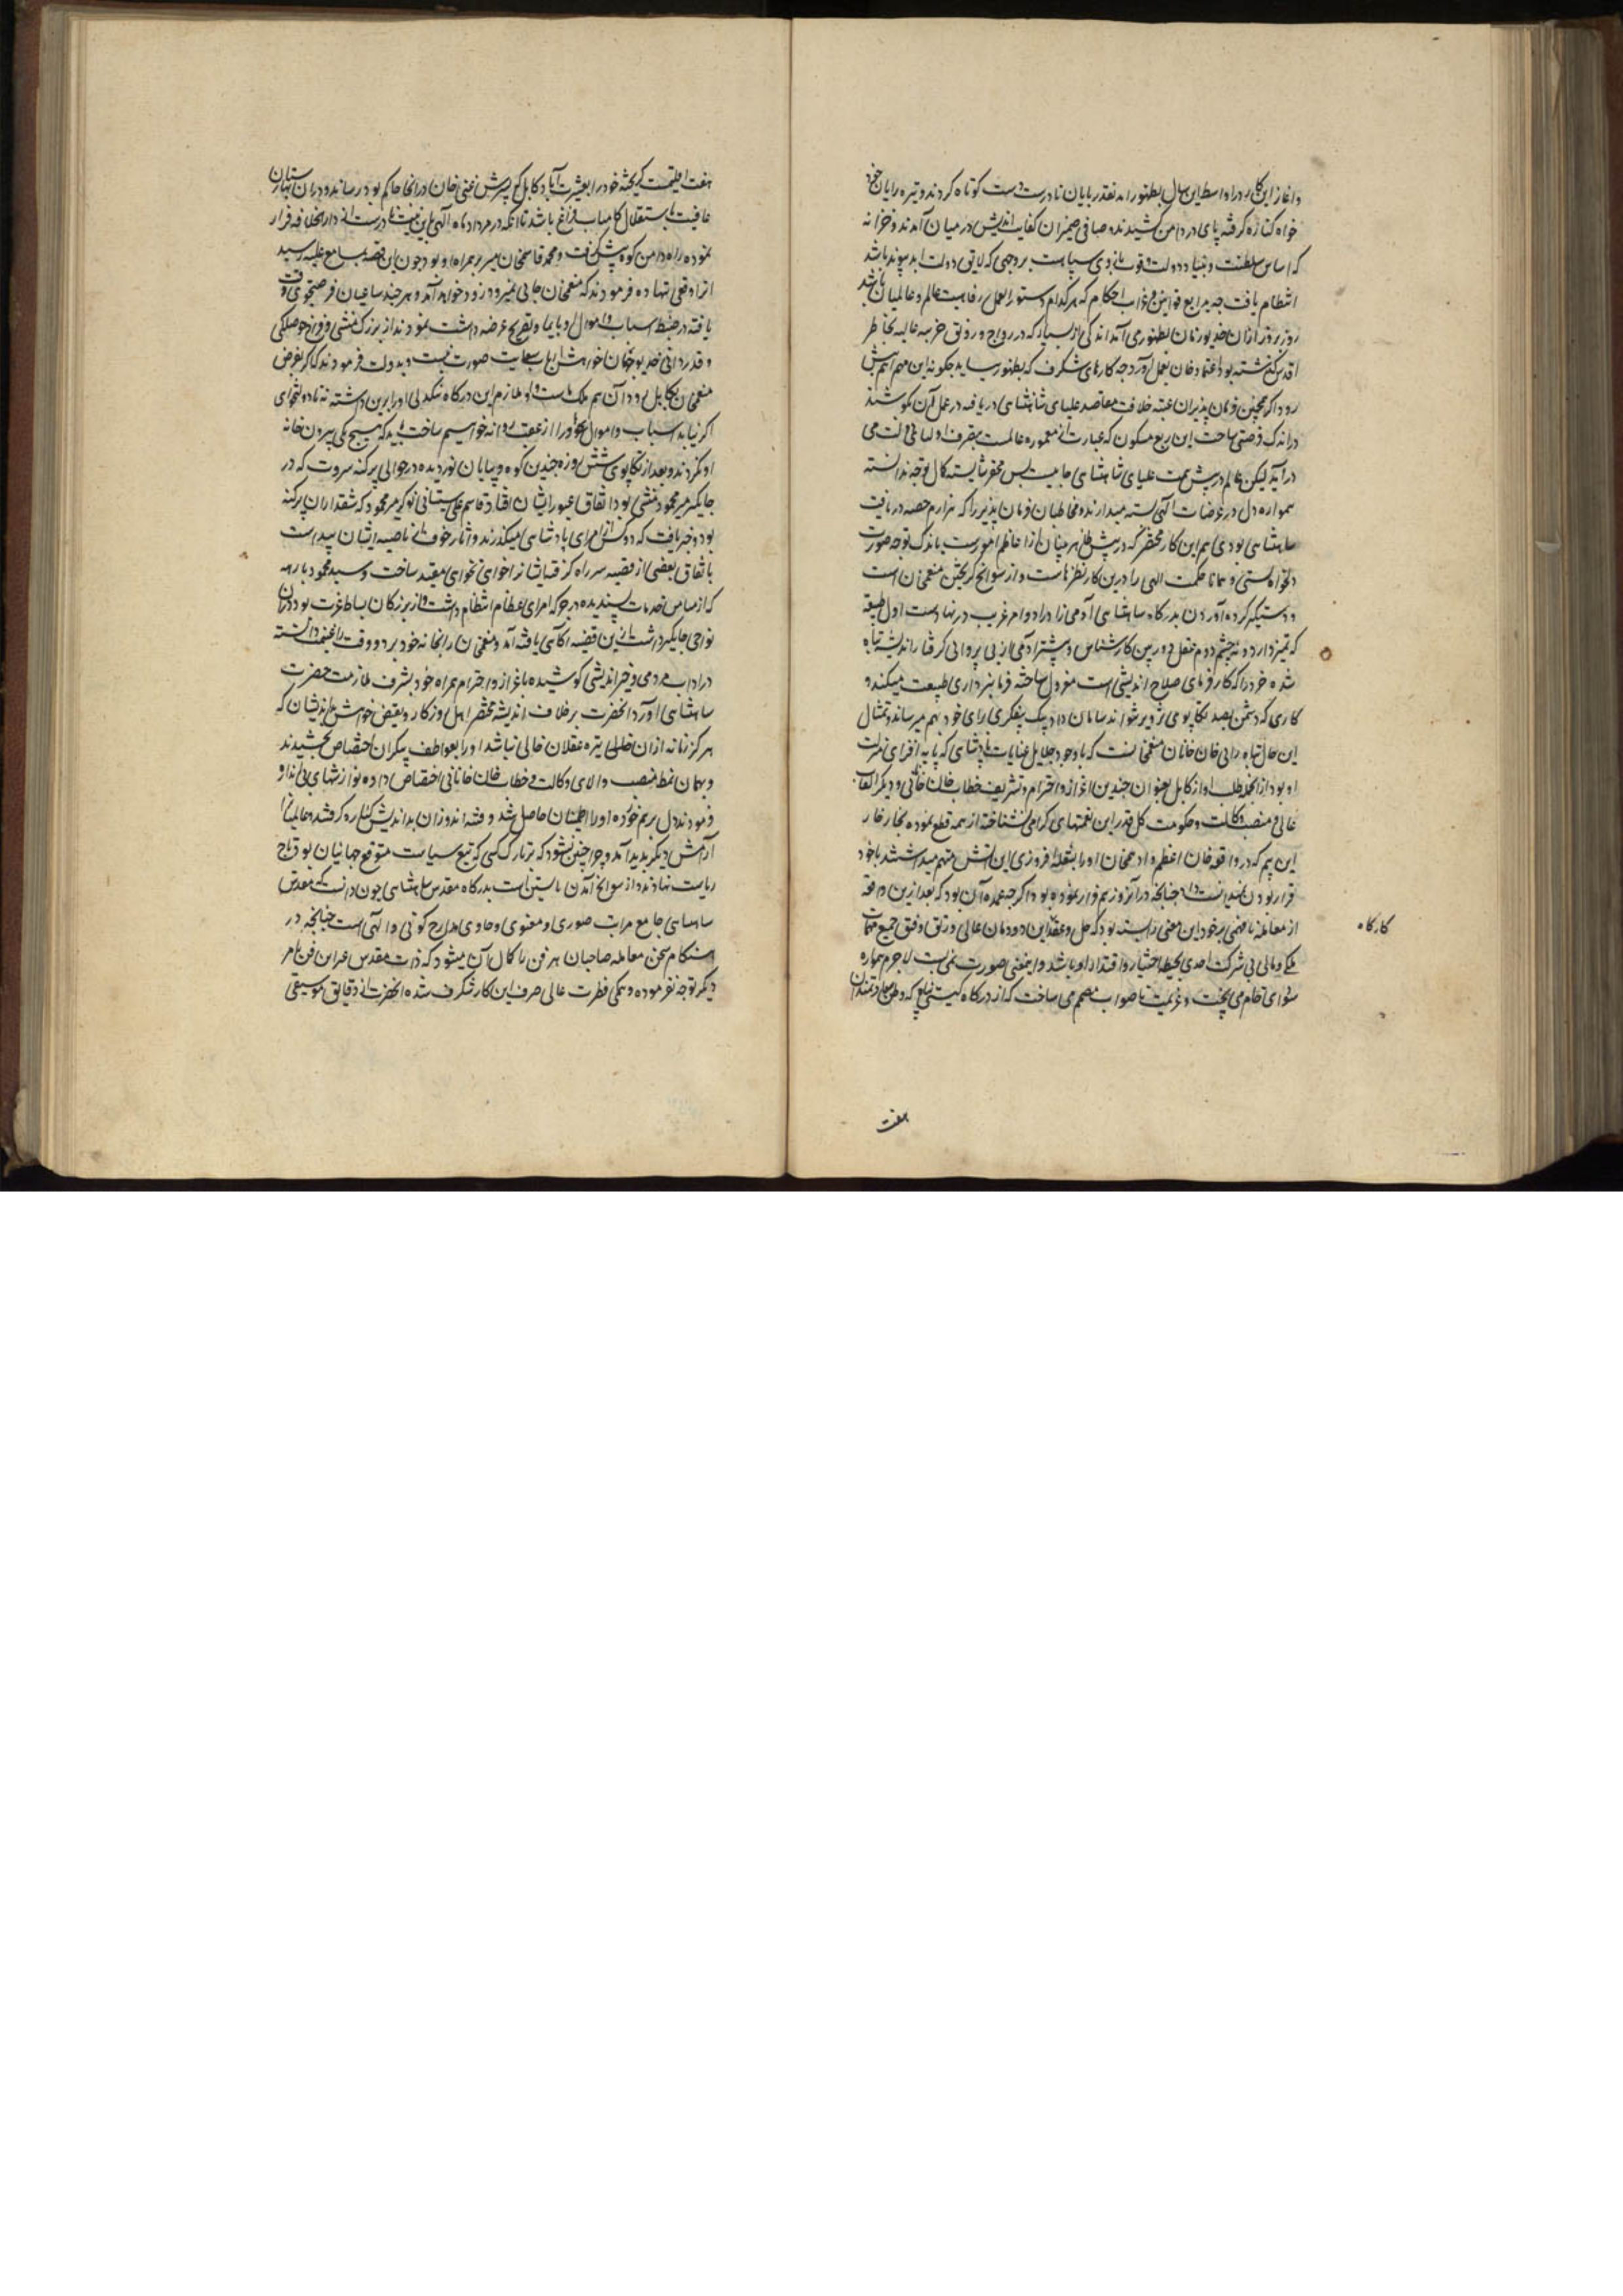 و آغاز این کار در اواسط این سال بظهور آمد نقد ربایان نادرست دست کوتاه کردند و تیره رایان خود
خواه کناره گرفته پای در دامن کشیدند و صافی ضمیران کفایت اندیش در میان آمدند و خزانه
که اساس سلطنت و بنیاد دولت و قوت بازوی سپاهست بر وجهی که لایق دولت ابد پیوند باشد
انتظام یافت چه بدایع قوانین و غرایب احکام که هر کدام دستور العمل رفاهیت عالم و عالمیان باشد
روز بروز ازان خدیو زمان بظهور می آمد اندکی از بسیار که در رواج و رونق خزینه عالیه بخاطر
اقدس گذشته بود اعتماد خان بعمل آورد چه کارهای شگرف که بظهور رسانید چگونه این مهم اتم پیش
رود اگر همچنین فرمان پذیران عتبه خلافت مقاصد علیای شاهنشاهی دریافته در عمل آن کوشند
در اندک فرصتی ساحت این ربع مسکون که عبارت از معموره عالمست بتصرف اولیای دولت می
در آید لیکن عالم در پیش همت علیای شاهنشاهی جائیست بس محقر شایسته کمال توجه ندانسته
همواره دل در مرضیات الهی بسته میدارند و مخاطبان فرمان پذیر را که هزارم حصه دریافت
شاهنشاهی بودی هم این کار محقر که در پیش ظاهر بینان از اعاظم امورست باندک توجه صورت
دلخواه بستی و همانا حکمت الهی را درین کار نظرهاست و از سوانح گریختن منعم خان است
و دستگیر کرده آوردن بدرگاه شاهنشاهی آدمی زاد را دو امر غریب در نهادست اول طبیعه
که تمیز ندارد و نه چشم دوم عقل دوربین کارشناس و بیشتر آدمی از بی پروایی گرفتار اندیشه تباه
شده خرد را که کارفرمای صلاح اندیشی است معزول ساخته فرمانبرداری طبیعت میکند و
کاری که دشمن بصد تکاپوی تزویر نتواند سامان داد بیک بیفکری برای خود بهم میرساند و تمثال
این حال تباه رایی خان خانان منعم خانست که با وجود جلایل عنایات پادشاهی که پایه افزای منزلت
او بود از آنجمله طلب او از کابل بعنوان چندین اعزاز و احترام و تشریف خطاب خان خانانی و دیگر القاب
عالی و منصب وکالت و حکومت کل قدر این نعمتهای گرامی نشناخته از همه قطع نموده بخار خار
این بیم که در واقعه خان اعظم و ادهم خان او را بشعله افروزی این آتش متهم میداشتند با خود
قرار بودن نمیدانست چنانچه در آنروز هم فرار نموده بود اگرچه عمده آن بود که بعد ازین واقعه
از معامله نافهمی بر خود این معنی را بسته بود که حل و عقد این دودمان عالی و رتق و فتق جمیع مهمات
ملکی و مالی بی شرکت احدی بحیطه اختیار و اقتدار او باشد و اینمعنی صورت نمی بست لاجرم همواره
سودای خام می پخت و عزیمت ناصواب مصمم می ساخت که از درگاه گیتی پناه که وطن سعادتمندان
کارگاه
هفت
هفت اقلیمست گریخته خود را بعشرت آباد کابل که پسرش غنی خان در آنجا حاکم بود رساند و در ان بهارستان
عافیت باستقلال کامیاب فراغ باشد تا آنکه در مرداد ماه الهی باین نیت نادرست از دار الخلافه فرار
نموده راه دامن کوه پیش گرفت و محمد قاسم خان میر بحر همراه او بود چون این قضیه بمسامع علیه رسید
انرا وقعی ننهاده فرمودند که منعم خان جایی نمیرود زود خواهد آمد و هر چند ساعیان فرصتجوی وقت
یافته در ضبط اسباب و اموال او بایما و تصریح عرضه داشت نمودند از بزرگ منشی و فراخ حوصلگی
و قدردانی خدیو جهان خواهش ارباب سعایت صورت نبست و بدولت فرمودند که اگر بفرض
منعم خان بکابل رود آن هم ملک ماست و او ملازم این درگاه تنگدلی او را برین داشته نه نادولتخواهی
اگر نیاید اسباب و اموال او را از عقب روانه خواهیم ساخت باید که هیچ یکی پیرون خانه
او نگردند و بعد از تکاپوی شش روزه چندین کوه و بیابان نوردیده در حوالی پرگنه سروت که در
جایگیر میر محمود منشی بود اتفاق عبور ایشان افتاد قاسم علی سیستانی نوکر میر محمود که شقدار آن پرگنه
بود خبر یافت که دو کس از امرای پادشاهی میگذرند و آثار خوف از ناصیه ایشان پیداست
باتفاق بعضی از قصبه سر راه گرفته ایشانرا خواهی نخواهی مقید ساخت و سید محمود بارهه
که از میامن خدمات پسندیده در جرگه امرای عظام انتظام داشت و از بزرگان بساط عزت بود در ان
نواحی جایگیر داشت ازین قضیه آگاهی یافته آمد و منعم خان را بخانه خود برد و وقت را غنیمت دانسته
در آداب مردمی و خیر اندیشی کوشیده باعزاز و احترام همراه خود بشرف ملازمت حضرت
شاهنشاهی آورد آنحضرت بر خلاف اندیشه محقر اهل روزگار و نقیض خواهش بد اندیشان که
هرگز زمانه ازان خالی تیره عقلان خالی نباشد او را بعواطف بیکران اختصاص بخشیدند
و بهمان نمط منصب والای وکالت و خطاب خان خانانی اختصاص داده نوازشهای بی اندازه
فرمودند دل برهم خورده او را اطمینان حاصل شد و فتنه اندوزان بد اندیش کناره گرفتند و عالمیانرا
آرامش دیگر پدید آمد و چرا چنین نشود که بر تارک کسی که تیغ سیاست متوقع جهانیان بود تاج
ریاست نهادند و از سوانح آمدن تانسین است بدرگاه مقدس شاهنشاهی چون ذات مقدس
شاهنشاهی جامع مراتب صوری و معنوی و حاوی مدارج کونی و الهی است چنانچه در
هنگام سخن معامله صاحبان هر فن با کمال آن میشود که ذات مقدس غیر این فن بامر
دیگر توجه نفرموده و همگی فطرت عالی صرف این کار شگرف شده آنحضرت از دقایق موسیقی